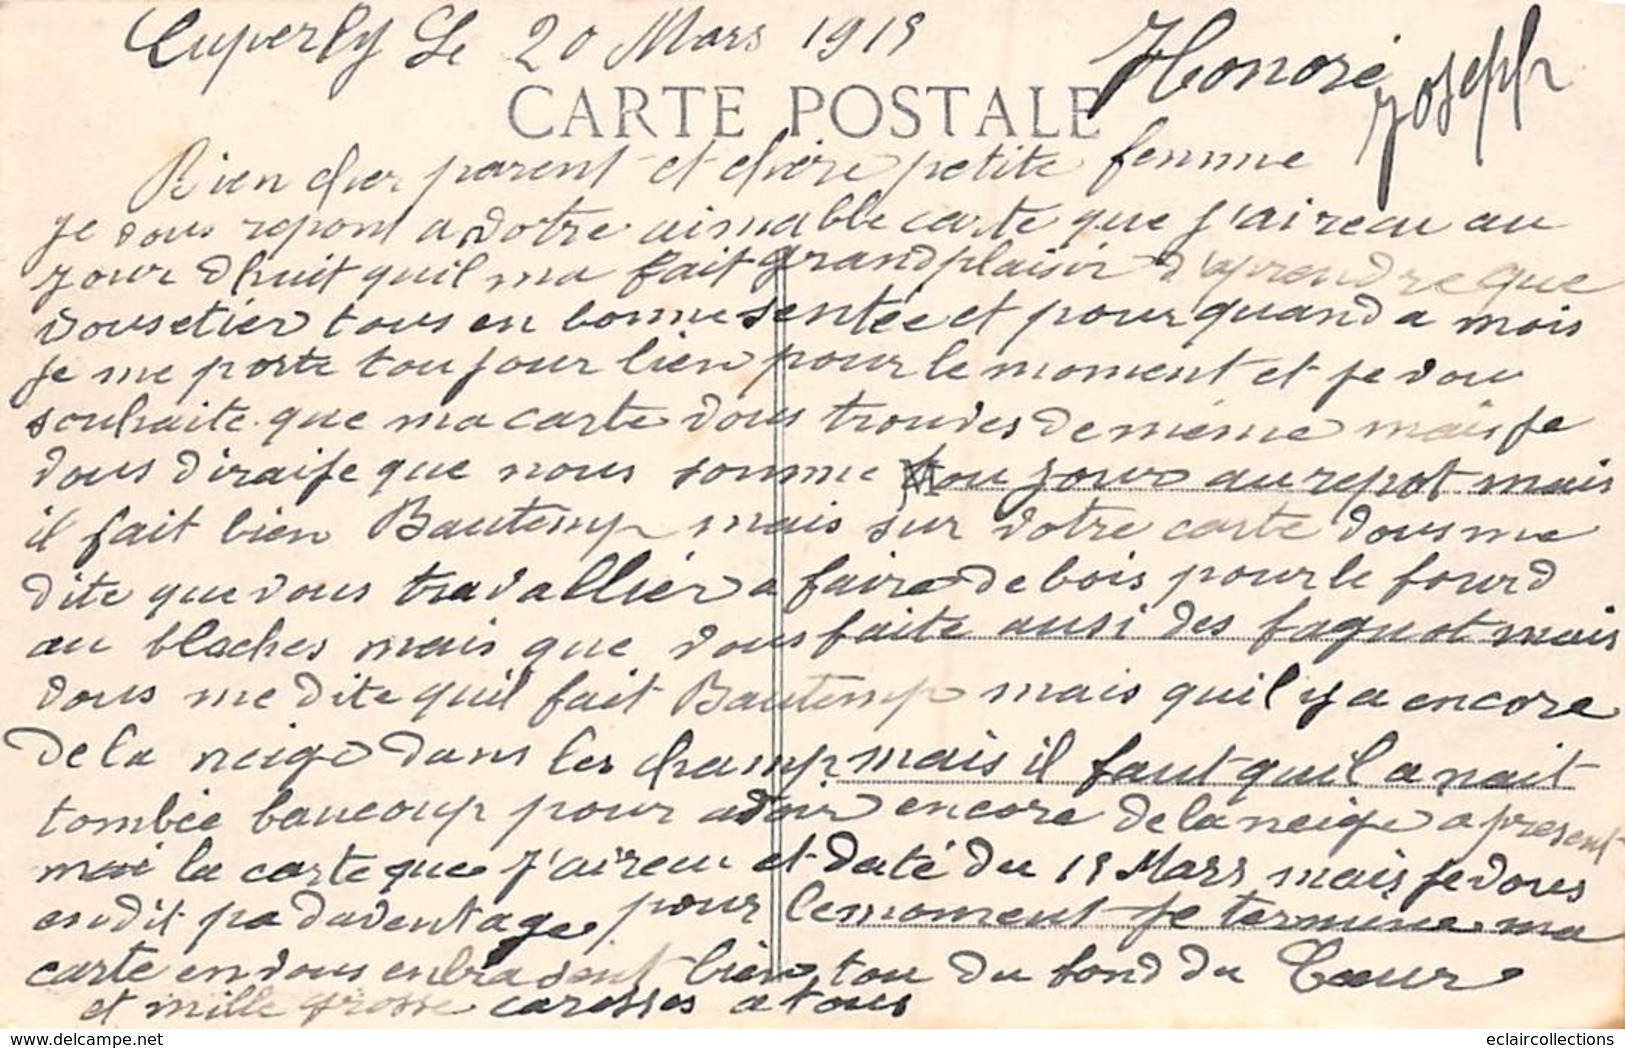 Cuperly Le 20 Mars 1915
Honoré Joseph
CARTE POSTALE
Bien cher parent et chère petite femme
je vous repont a votre aimable carte que j'ai recu au
jour dhuit quil ma fait grand plaisir d'aprendre que
vous etier tous en bonne sentée et pour quand a mois
je me porte tou jour bien pour le moment et je vou
souhaite que ma carte vous trouves de mème mais je
vous dirai je que nous somme tou jour au repot mais
il fait bien Bautemp mais sur votre carte vous me
dite que vous travallier a faire de bois pour le fourd
au blaches mais que vous faite ausi des fagot mais
vous me dite quil fait Bautemp mais quil y a encore
de la neige dans les champ mais il faut quil a nait
tombée baucoup pour avoir encore de la neige a present
mai la carte que j'ai recu et daté du 15 Mars mais je vous
en dit pa daventage pour le moment je termine ma
carte en vous enbrasent bien tou du fond du Cœur
et mille grosse caresses a tous
eclaircollections